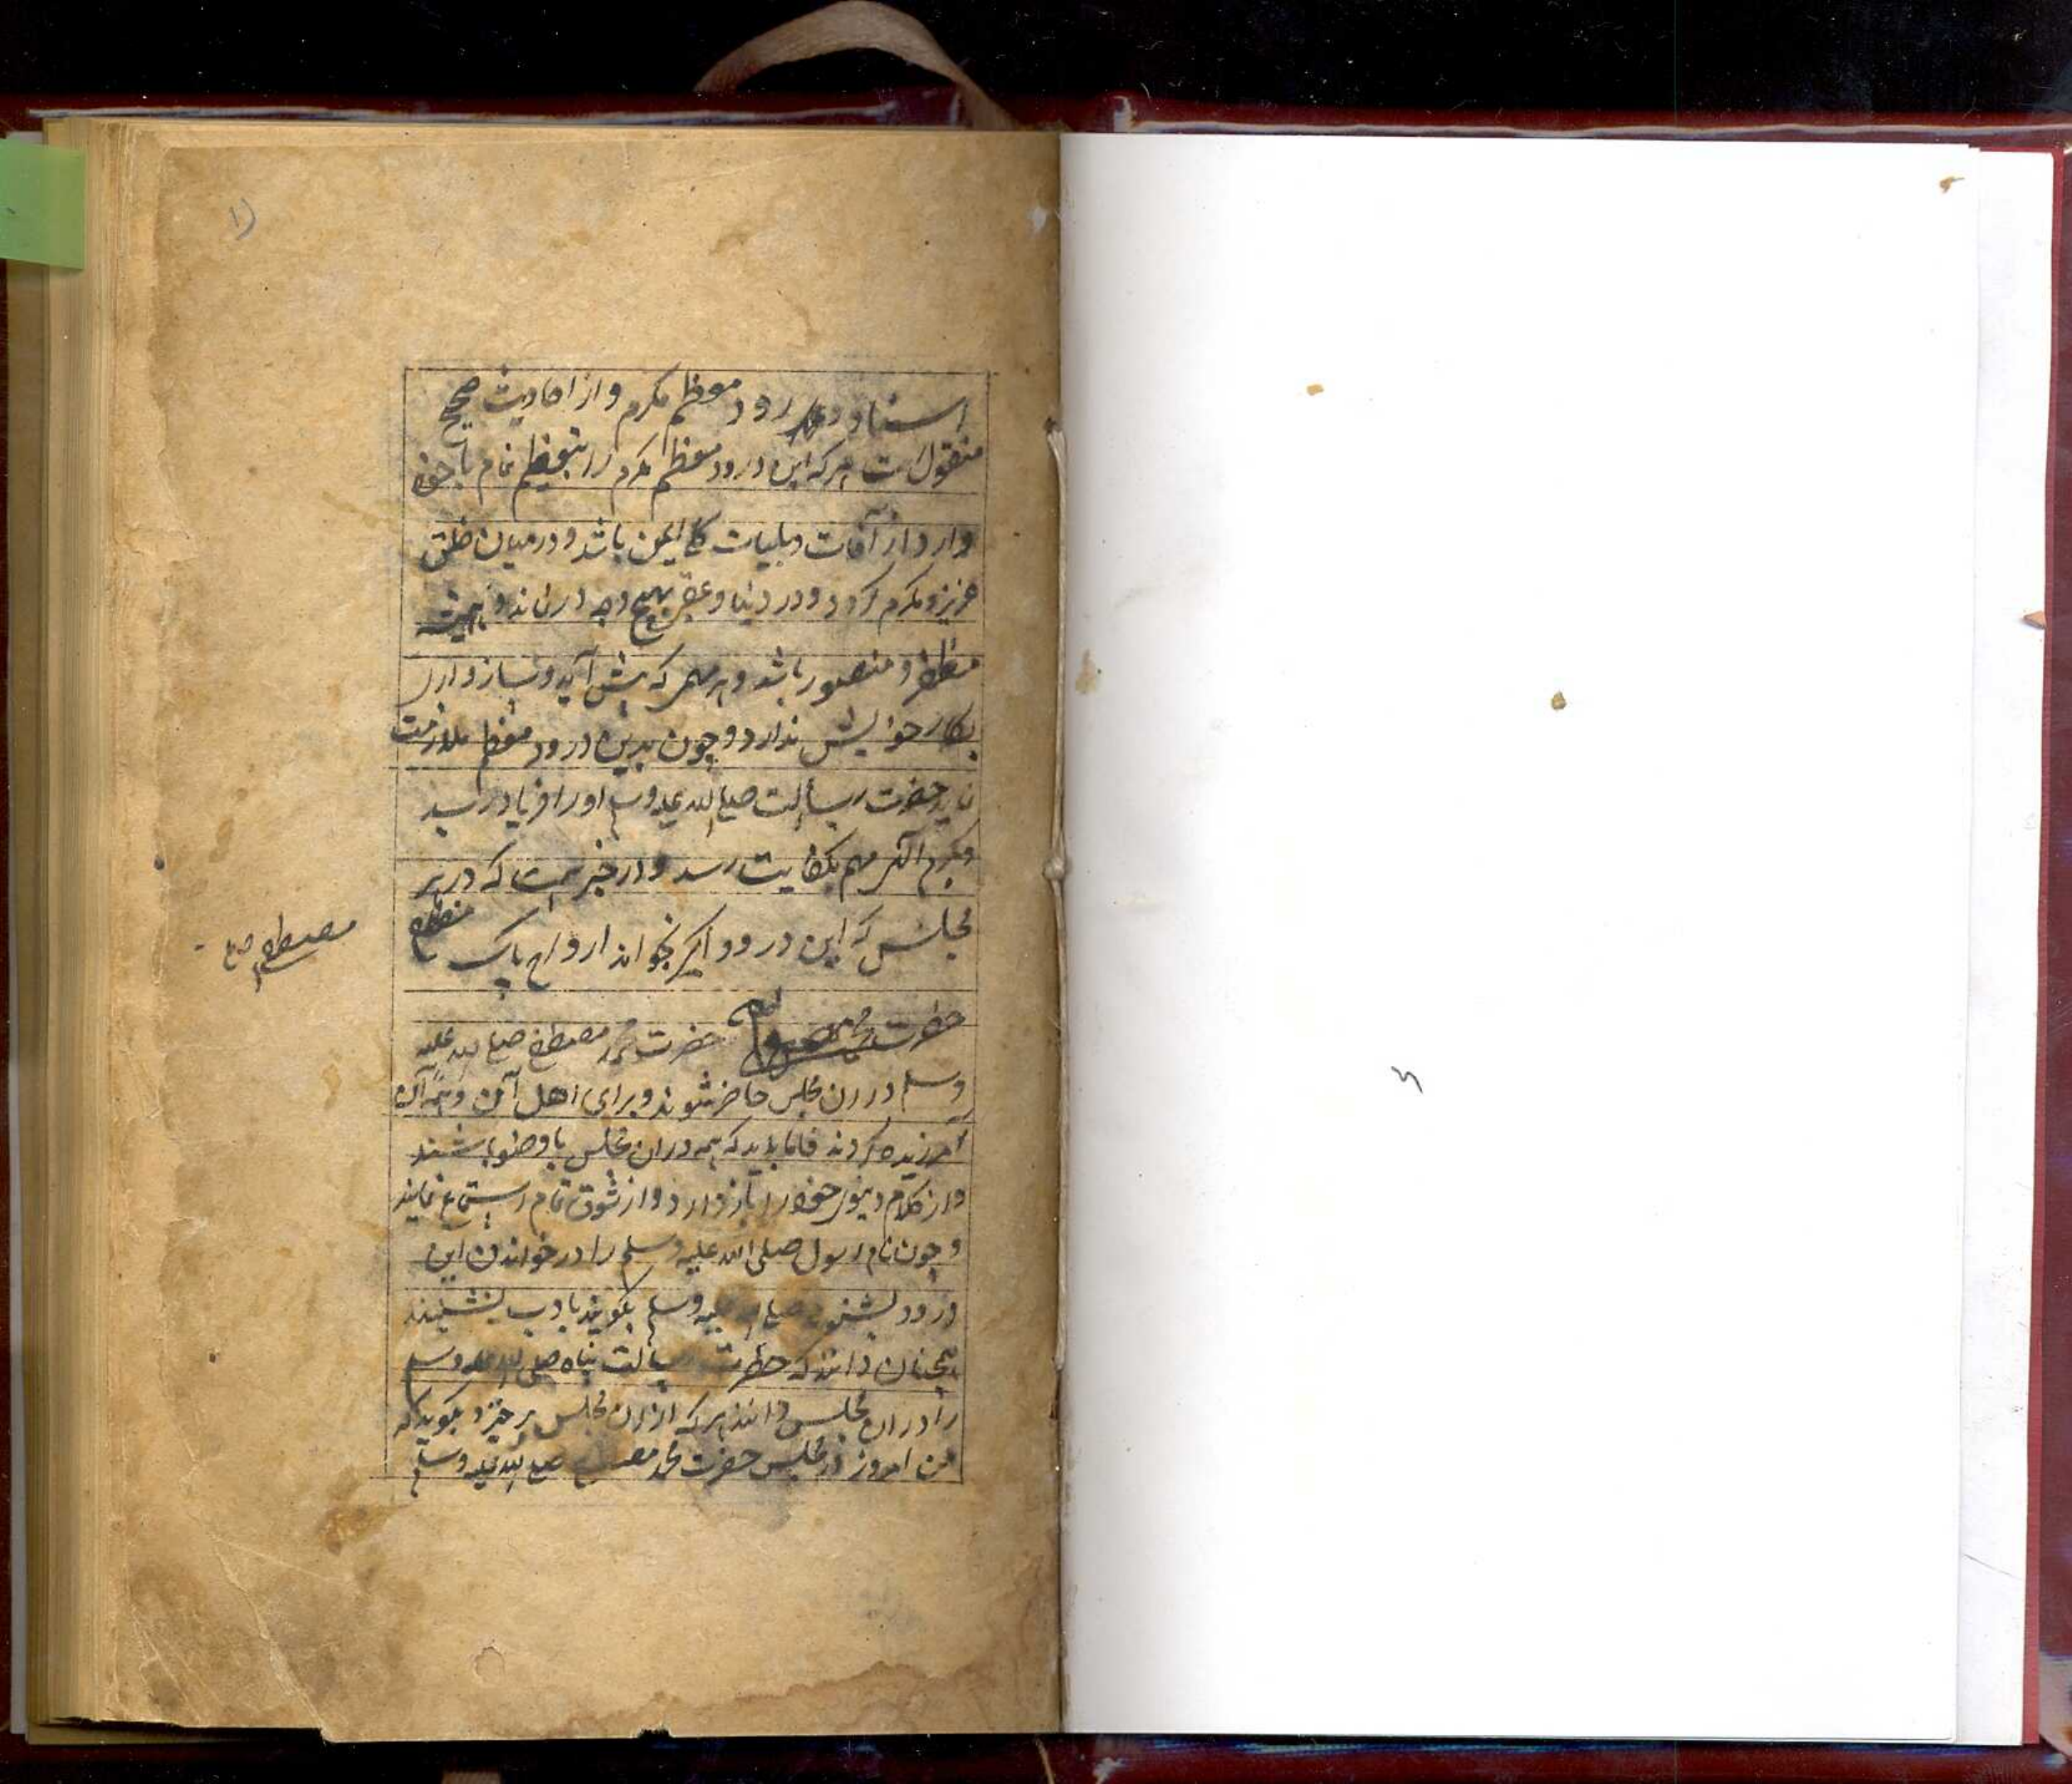 اسناد درود معظم مکرم و از احادیث صحیح
منقول است هر که این درود معظم مکرم را بتعظیم تمام با خود
دارد از آفات و بلیات کلی ایمن باشد و در میان خلق
عزیز و مکرم گردد و در دنیا و عقبی بهیچ وجه درنماند و همیشه
مظفر و منصور باشد و هر مهمی که پیش آید
بکار خویش ندارد و چون بدین درود معظم ملازمت
نماید حضرت رسالت صلی الله علیه وسلم او را فریاد رسد
مهم بکفایت رسد و در خبر است که در هر
مجلس که این درود اکبر بخواند ارواح پاک
حضرت محمد مصطفی صلی الله علیه
وسلم در آن مجلس حاضر شوند و برای اهل آن
آمرزیده گردند فاما باید که همه در آن مجلس با وضو باشند
و از کلام دنیوی خود را باز دارد و از شوق تمام استماع نمایند
و چون نام رسول صلی الله علیه وسلم را در خواندن این
درود بشنوند صلی الله علیه وسلم بگویند با دب بنشینند
همچنان دانند که حضرت رسالت پناه صلی الله علیه وسلم
را در آن مجلس دانند هر که از آن مجلس برخیزد بگوید که
من امروز در مجلس حضرت محمد مصطفی صلی الله علیه وسلم
مصطفی صلع